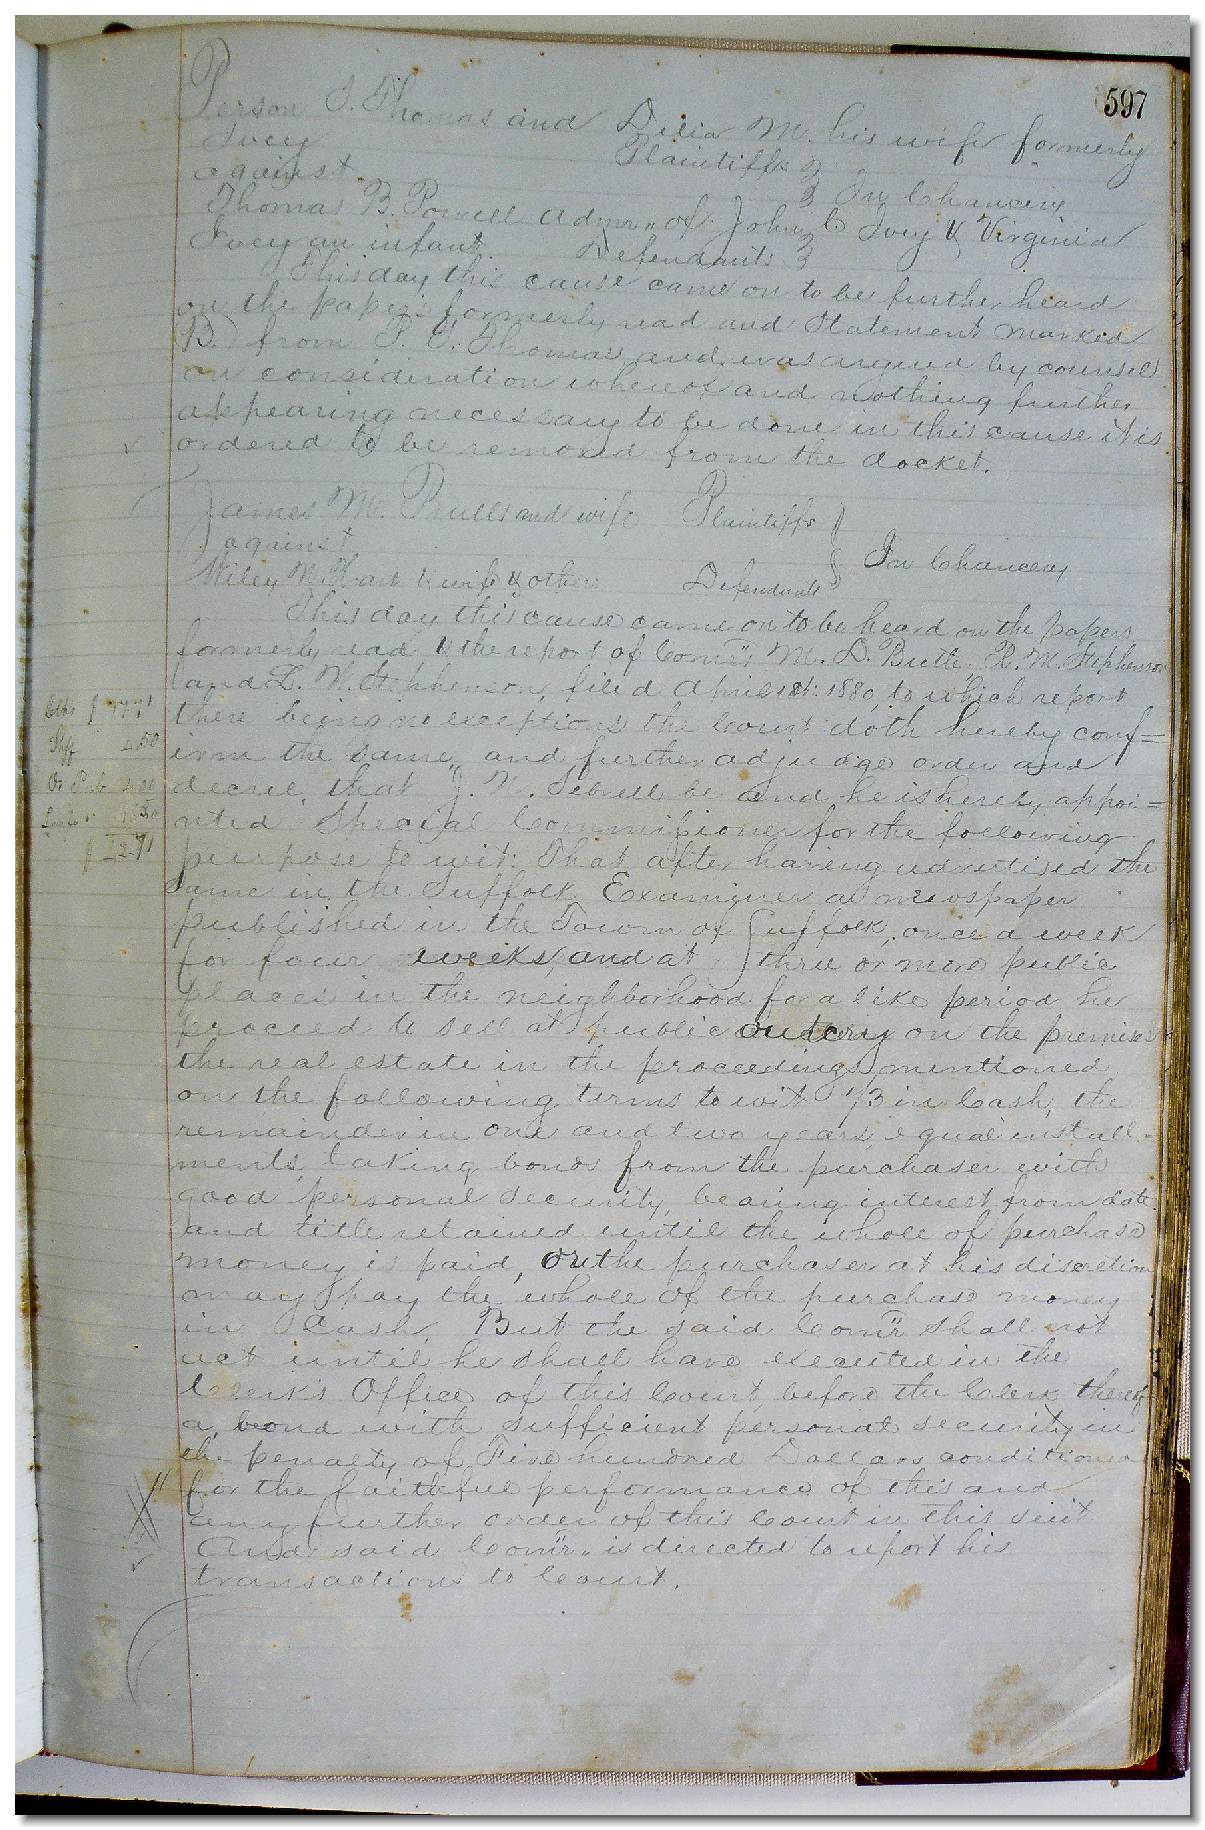 597
Person S. Thomas and Delia M. his wife formerly
Ivey Plaintiffs
against In Chancery
Thomas B. Powell Admr. of John C Ivey & Virginia
Ivey an infant Defendants
This day this cause came on to be further heard
on the papers formerly read and Statement marked
B. from P. S. Thomas and was argued by counsel
on consideration whereof and nothing further
appearing necessary to be done in this cause it is
ordered to be removed from the docket.
James M. and wife Plaintiffs
against In Chancery
Wiley & wife & others Defendants
This day this cause came on to be heard on the papers
formerly read & the report of Comr's M. D. Butler R. M. Stephenson
and L. W. Stephenson, filed April 1880, to which report
there being no exceptions the Court doth hereby conf=
irm the same, and further adjudge order and
decree, that J. W. Sebrell be and he is hereby appoi=
nted Special Commissioner for the following
purpose to wit: That after having advertised the
same in the Suffolk Examiner a newspaper
published in the Town of Suffolk, once a week
for four weeks, and at three or more public
places in the neighborhood for a like period he
proceed to sell at public outcry on the premises
the real estate in the proceedings mentioned
on the following terms to wit 1/3 in Cash, the
remainder in one and two years, equal install-
ments, taking bonds from the purchaser with
good personal security, bearing interest from date
and title retained until the whole of purchase
money is paid, or the purchaser at his discretion
may pay the whole of the purchase money
in Cash. But the said Comr shall not
act until he shall have executed in the
Clerk's Office of this Court before the Clerk thereof
a bond with sufficient personal security in
the penalty of Five hundred Dollars conditioned
for the faithful performance of this and
any further order of this Court in this suit
And said Comr. is directed to report his
transactions to Court.